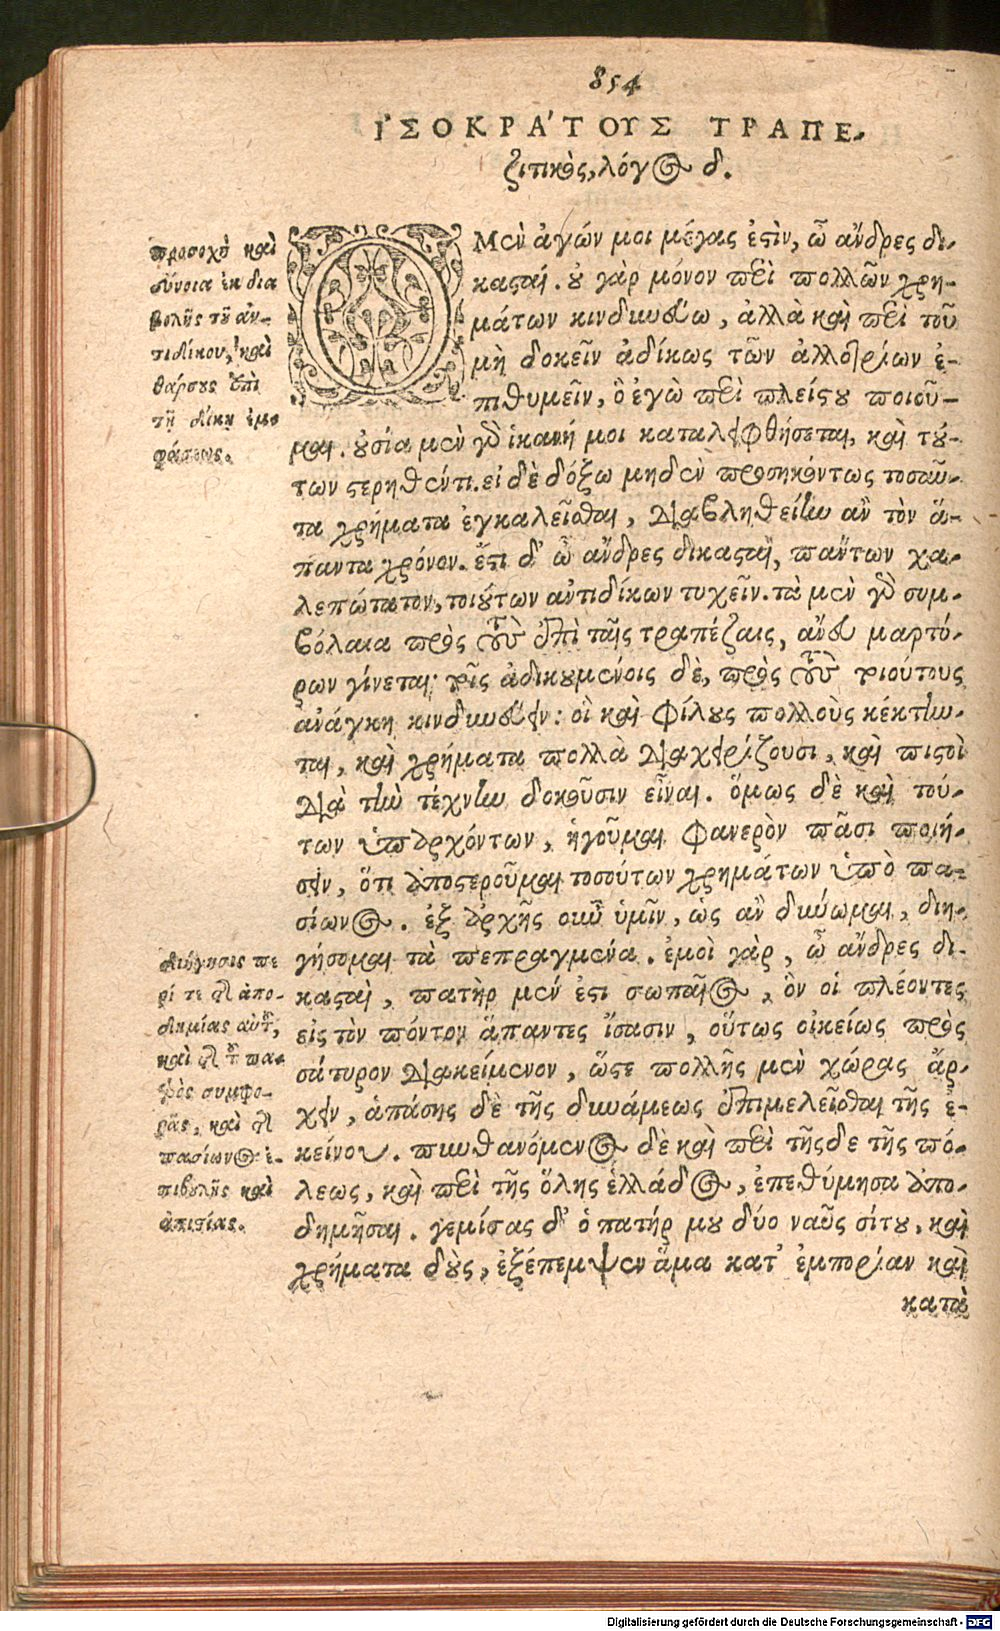 854
ἸΣΟΚΡΆΤΟΥΣ ΤΡΑΠΕ-
ζιτικὸς, λόγος δ.
προσοχὴ καὶ
εὔνοια ἐκ δια
βολῆς τοῦ ἀν-
τιδίκου, καὶ
θάρσους ἐπὶ
τῇ δίκῃ ἐμ-
φάσεως.
Ο Μὲν ἀγών μοι μέγας ἐστὶν, ὦ ἄνδρες δι-
καςταί. οὐ γὰρ μόνον περὶ πολλῶν χρη-
μάτων κινδυνεύω, ἀλλὰ καὶ περὶ τοῦ
μὴ δοκεῖν ἀδίκως τῶν ἀλλοτρίων ἐ-
πιθυμεῖν, ὃ ἐγὼ περὶ πλείστου ποιοῦ-
μαι. οὐσία μὲν γὰρ ἱκανή μοι καταλειφθήσεται, καὶ τού-
των στερηθέντι. εἰ δὲ δόξω μηδὲν προσηκόντως τοσαῦ-
τα χρήματα ἐγκαλεῖσθαι, διαβληθείην ἂν τὸν ἅ-
παντα χρόνον. ἔστι δ' ὦ ἄνδρες δικασταὶ, πάντων χα-
λεπώτατον, τοιούτων ἀντιδίκων τυχεῖν. τὰ μὲν γὰρ συμ-
βόλαια πρὸς τοὺς ἐπὶ ταῖς τραπέζαις, ἄνευ μαρτύ-
ρων γίνεται· τοῖς ἀδικουμένοις δὲ, πρὸς τοὺς τοιούτους
ἀνάγκη κινδυνεύειν: οἳ καὶ φίλους πολλοὺς κέκτην-
ται, καὶ χρήματα πολλὰ διαχειρίζουσι, καὶ πιστοὶ
διὰ τὴν τέχνην δοκοῦσιν εἶναι. ὅμως δὲ καὶ τού-
των ὑπαρχόντων, ἡγοῦμαι φανερὸν πᾶσι ποιή-
σειν, ὅτι ἀποστεροῦμαι τοσούτων χρημάτων ὑπὸ πα-
σίωνος. ἐξ ἀρχῆς οὖν ὑμῖν, ὡς ἂν δύνωμαι, διη-
γήσομαι τὰ πεπραγμένα. ἐμοὶ γὰρ, ὦ ἄνδρες δι-
κασταὶ, πατὴρ μέν ἐστι σωπαῖος, ὃν οἱ πλέοντες
εἰς τὸν πόντον ἅπαντες ἴσασιν, οὕτως οἰκείως πρὸς
σάτυρον διακείμενον, ὥστε πολλῆς μὲν χώρας ἄρ-
χειν, ἁπάσης δὲ τῆς δυνάμεως ἐπιμελεῖσθαι τῆς ἐ-
κείνου. πυνθανόμενος δὲ καὶ περὶ τῆςδε τῆς πό-
λεως, καὶ περὶ τῆς ὅλης ἑλλάδος, ἐπεθύμησα ἀπο-
δημῆσαι. γεμίσας δ' ὁ πατήρ μου δύο ναῦς σίτου, καὶ
χρήματα δοὺς, ἐξέπεμψεν ἅμα κατ' ἐμπορίαν καὶ
κατὰ
διήγησις πε
ρί τε τῆς ἀπο-
δημίας αὐτοῦ,
καὶ τῆς τοῦ πα-
τρὸς συμφο-
ρᾶς, καὶ τῆς
πασίωνος ἐ-
πιβουλῆς καὶ
ἀπιστίας.